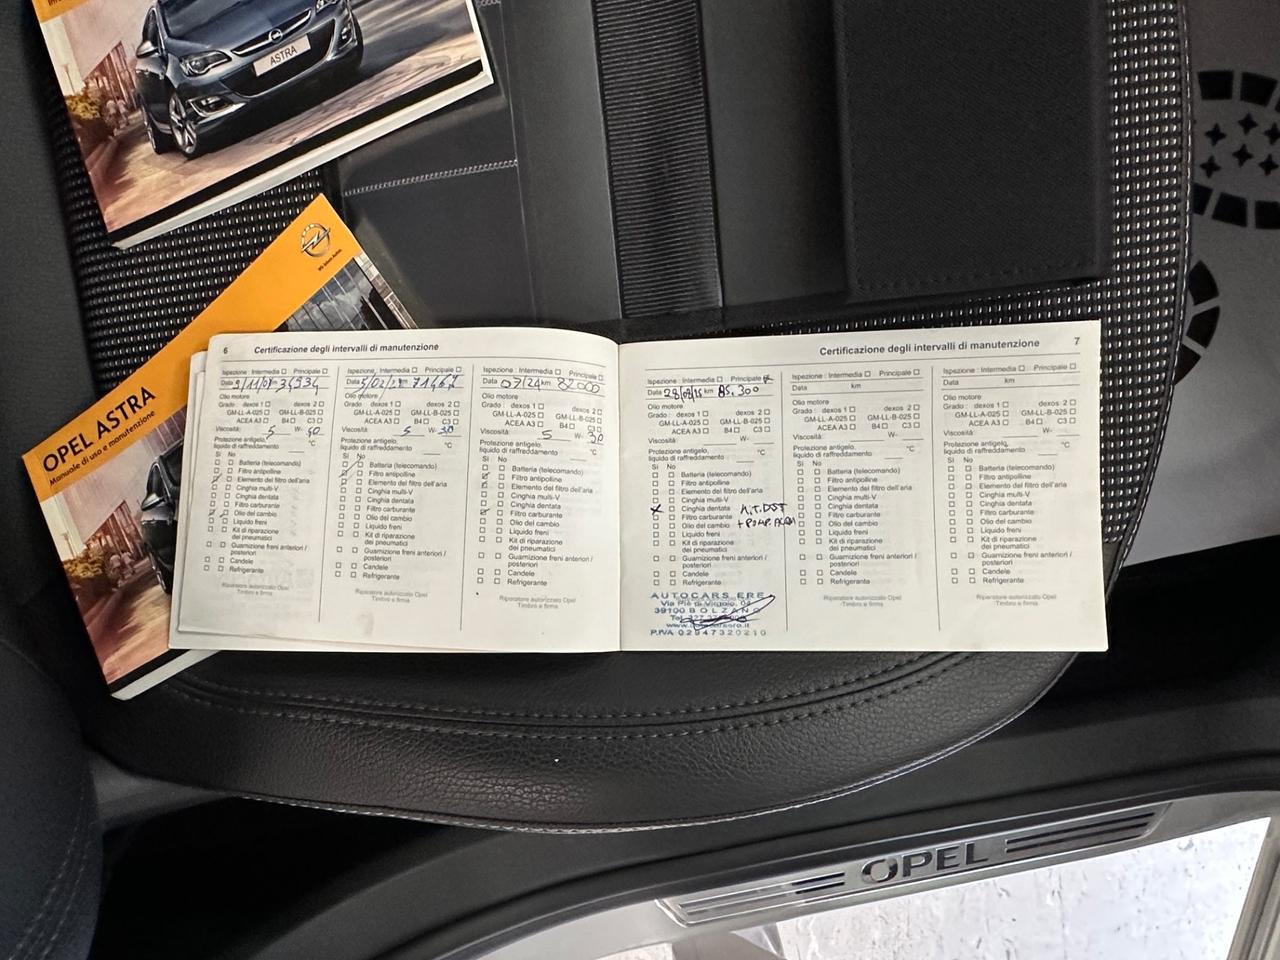 ASTRA
OPEL ASTRA
Manuale di uso e manutenzione
Wir leben Autos.
6 Certificazione degli intervalli di manutenzione
Ispezione : Intermedia ☐ Principale ☐
Data 9/11/ km 34934
Olio motore
Grado : dexos 1 ☐ dexos 2 ☐
GM-LL-A-025 ☐ GM-LL-B-025 ☐
ACEA A3 ☐ B4 ☐ C3 ☐
Viscosità: 5 W-
Protezione antigelo,
liquido di raffreddamento °C
Sì No
☐ ☐ Batteria (telecomando)
☐ ☐ Filtro antipolline
☐ Elemento del filtro dell'aria
☐ ☐ Cinghia multi-V
☐ ☐ Cinghia dentata
☐ ☐ Filtro carburante
Olio del cambio
☐ ☐ Liquido freni
☐ ☐ Kit di riparazione
dei pneumatici
☐ ☐ Guarnizione freni anteriori /
posteriori
☐ ☐ Candele
☐ ☐ Refrigerante
Riparatore autorizzato Opel
Timbro e firma
Ispezione : Intermedia ☐ Principale ☐
Data 5/02/ 71467
Olio motore
Grado : dexos 1 ☐ dexos 2 ☐
GM-LL-A-025 ☐ GM-LL-B-025 ☐
ACEA A3 ☐ B4 ☐ C3 ☐
Viscosità: 5 W- 30
Protezione antigelo,
liquido di raffreddamento °C
Sì No
Batteria (telecomando)
Filtro antipolline
Elemento del filtro dell'aria
☐ ☐ Cinghia multi-V
☐ ☐ Cinghia dentata
☐ ☐ Filtro carburante
☐ ☐ Olio del cambio
☐ ☐ Liquido freni
☐ ☐ Kit di riparazione
dei pneumatici
☐ ☐ Guarnizione freni anteriori /
posteriori
☐ ☐ Candele
☐ ☐ Refrigerante
Riparatore autorizzato Opel
Timbro e firma
Ispezione : Intermedia ☐ Principale ☐
Data 07/24 km 82000
Olio motore
Grado : dexos 1 ☐ dexos 2 ☐
GM-LL-A-025 ☐ GM-LL-B-025 ☐
ACEA A3 ☐ B4 ☐ C3 ☐
Viscosità: 5 W- 30
Protezione antigelo,
liquido di raffreddamento °C
Sì No
☐ ☐ Batteria (telecomando)
☐ Filtro antipolline
☐ Elemento del filtro dell'aria
☐ ☐ Cinghia multi-V
☐ ☐ Cinghia dentata
☐ Filtro carburante
☐ ☐ Olio del cambio
☐ ☐ Liquido freni
☐ ☐ Kit di riparazione
dei pneumatici
☐ ☐ Guarnizione freni anteriori /
posteriori
☐ ☐ Candele
☐ ☐ Refrigerante
Riparatore autorizzato Opel
Timbro e firma
Certificazione degli intervalli di manutenzione 7
Ispezione : Intermedia ☐ Principale
Data 28/08/25 km 85.300
Olio motore
Grado : dexos 1 ☐ dexos 2 ☐
GM-LL-A-025 ☐ GM-LL-B-025 ☐
ACEA A3 ☐ B4 ☐ C3 ☐
Viscosità: W-
Protezione antigelo,
liquido di raffreddamento °C
Sì No
☐ ☐ Batteria (telecomando)
☐ ☐ Filtro antipolline
☐ ☐ Elemento del filtro dell'aria
☐ ☐ Cinghia multi-V
X ☐ Cinghia dentata
☐ ☐ Filtro carburante
☐ ☐ Olio del cambio + POMP. ACQUA
☐ ☐ Liquido freni
☐ ☐ Kit di riparazione
dei pneumatici
☐ ☐ Guarnizione freni anteriori /
posteriori
☐ ☐ Candele
☐ ☐ Refrigerante
AUTOCARS ERE
Via Piè di Virgolo,
39100 BOLZANO
Tel.
P.IVA 02947320210
Ispezione : Intermedia ☐ Principale ☐
Data km
Olio motore
Grado : dexos 1 ☐ dexos 2 ☐
GM-LL-A-025 ☐ GM-LL-B-025 ☐
ACEA A3 ☐ B4 ☐ C3 ☐
Viscosità: W-
Protezione antigelo,
liquido di raffreddamento °C
Sì No
☐ ☐ Batteria (telecomando)
☐ ☐ Filtro antipolline
☐ ☐ Elemento del filtro dell'aria
☐ ☐ Cinghia multi-V
☐ ☐ Cinghia dentata
☐ ☐ Filtro carburante
☐ ☐ Olio del cambio
☐ ☐ Liquido freni
☐ ☐ Kit di riparazione
dei pneumatici
☐ ☐ Guarnizione freni anteriori /
posteriori
☐ ☐ Candele
☐ ☐ Refrigerante
Riparatore autorizzato Opel
Timbro e firma
Ispezione : Intermedia ☐ Principale ☐
Data km
Olio motore
Grado : dexos 1 ☐ dexos 2 ☐
GM-LL-A-025 ☐ GM-LL-B-025 ☐
ACEA A3 ☐ B4 ☐ C3 ☐
Viscosità: W-
Protezione antigelo,
liquido di raffreddamento °C
Sì No
☐ ☐ Batteria (telecomando)
☐ ☐ Filtro antipolline
☐ ☐ Elemento del filtro dell'aria
☐ ☐ Cinghia multi-V
☐ ☐ Cinghia dentata
☐ ☐ Filtro carburante
☐ ☐ Olio del cambio
☐ ☐ Liquido freni
☐ ☐ Kit di riparazione
dei pneumatici
☐ ☐ Guarnizione freni anteriori /
posteriori
☐ ☐ Candele
☐ ☐ Refrigerante
Riparatore autorizzato Opel
Timbro e firma
OPEL